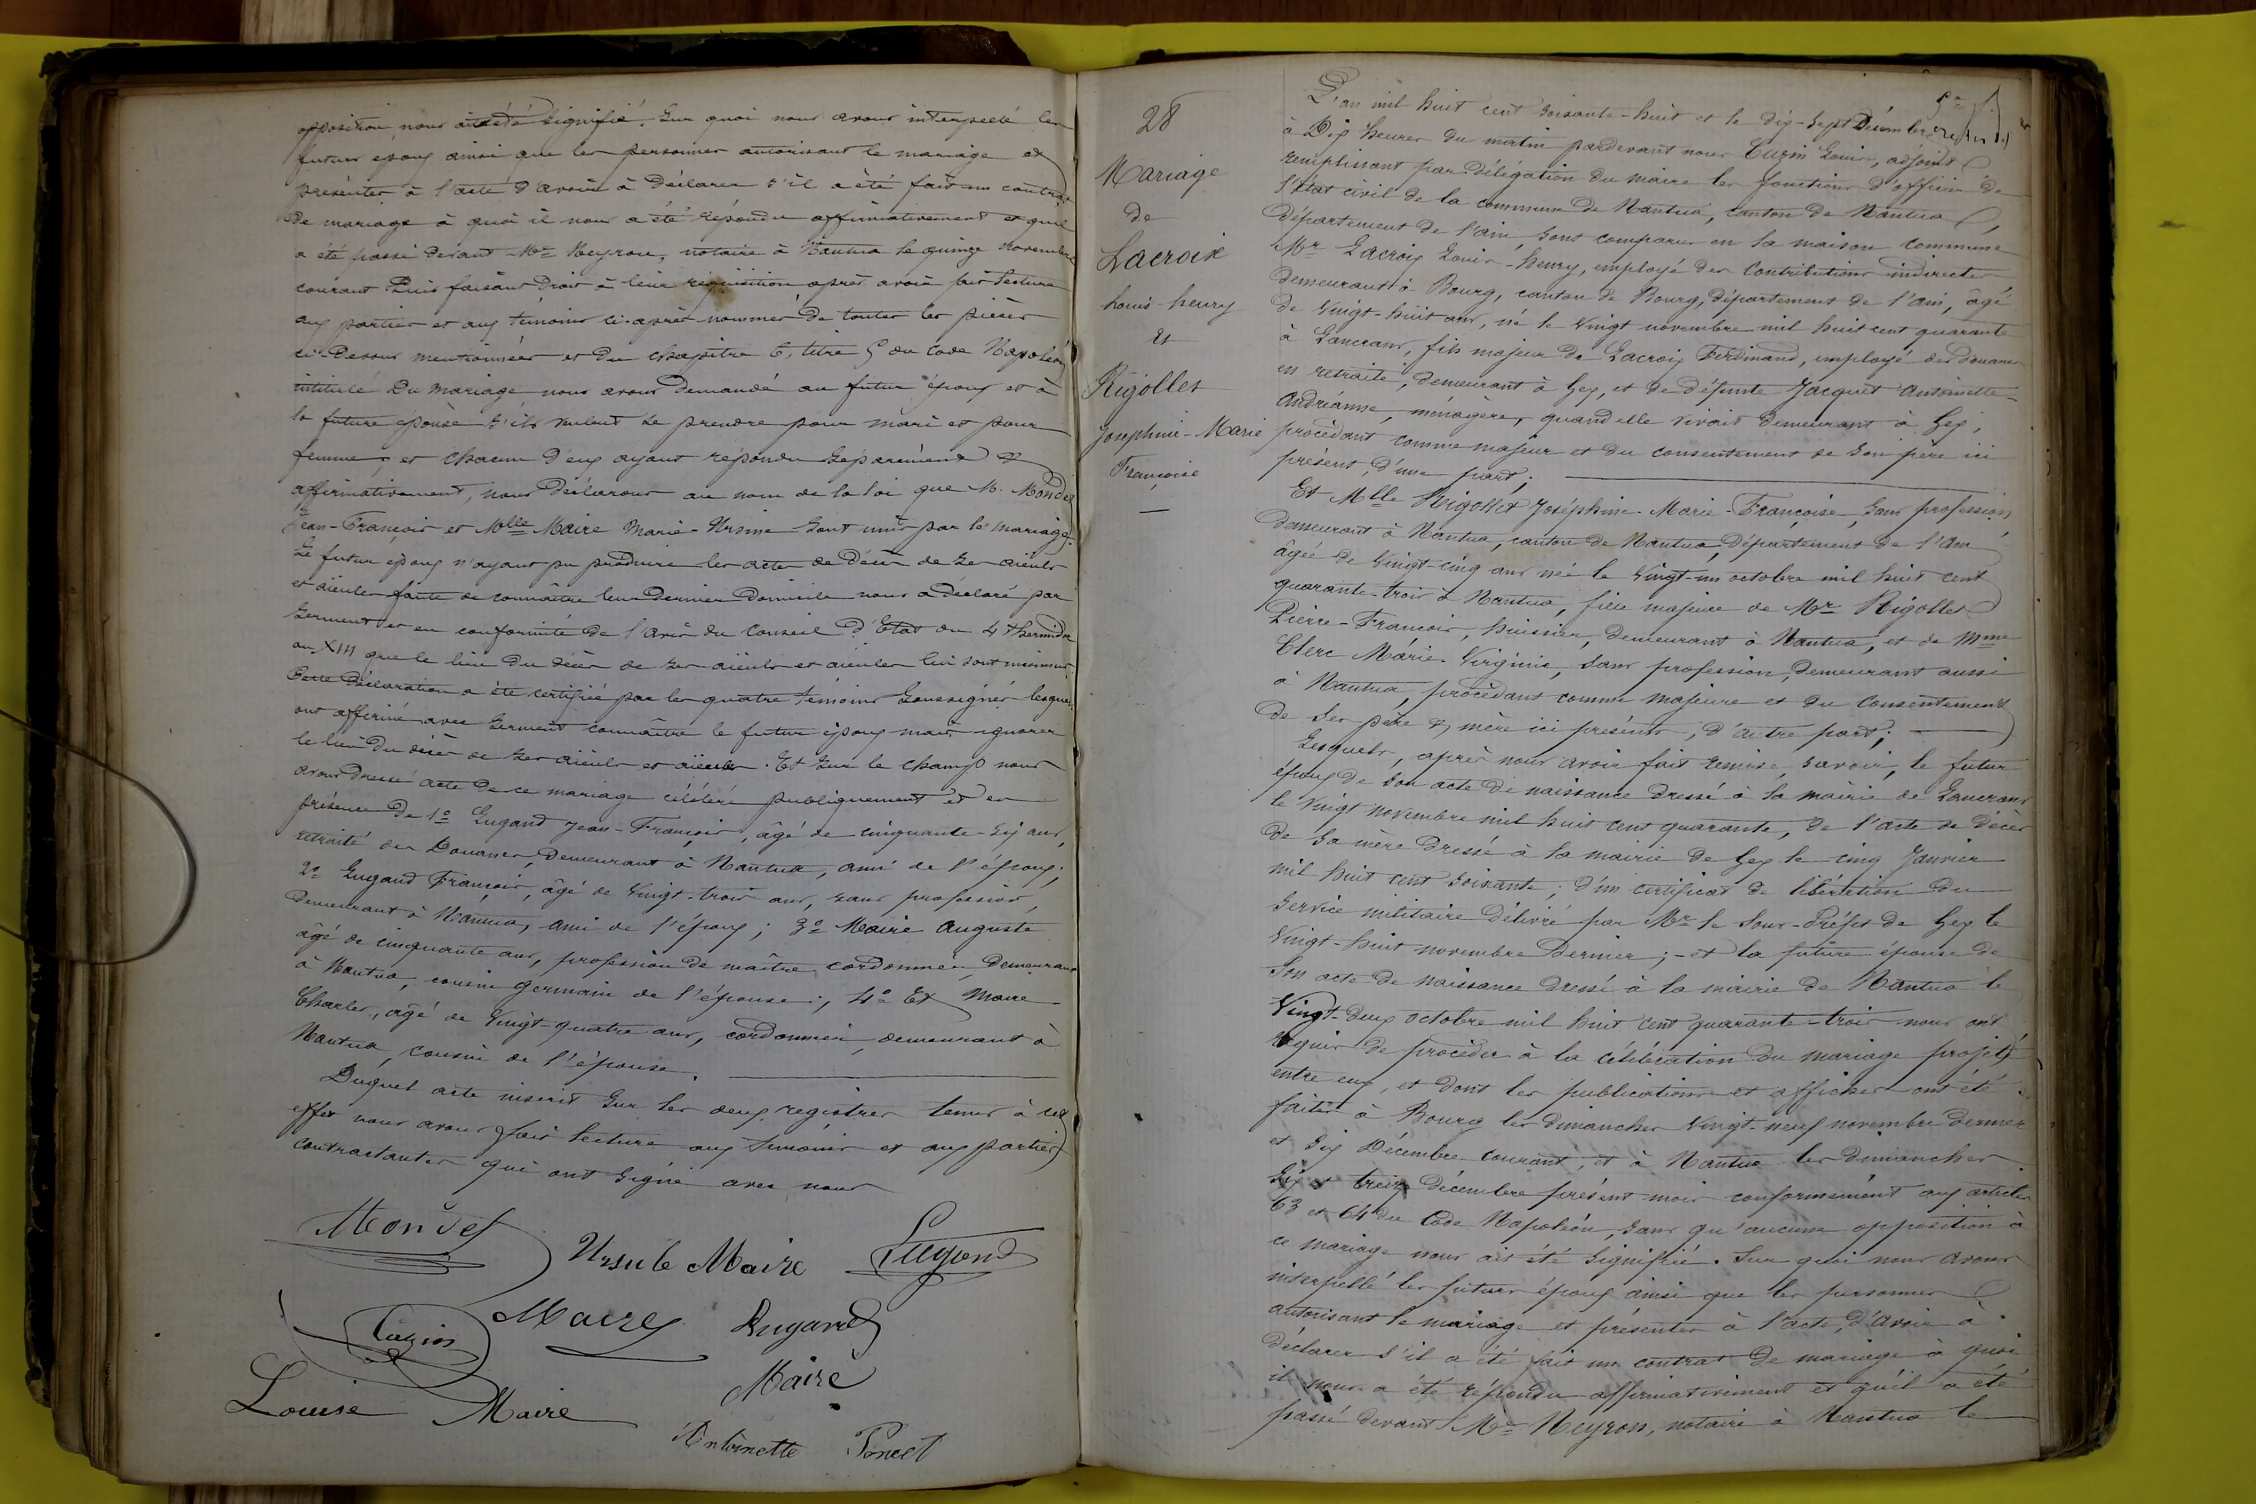 opposition nous ait été signifié. Sur quoi nous avons interpellé les
futurs époux ainsi que les personnes autorisant le mariage et
présentes à l'acte d'avoir à déclarer s'il a été fait un contrat
de mariage à quoi il nous a été répondu affirmativement et qu'il
a été passé devant Me Neyron, notaire à Nantua le quinze novembre
courant Puis faisant droit à leur réquisition après avoir fait lecture
aux parties et aux témoins ci-après nommés de toutes les pièces
ci-dessus mentionnées et du chapitre 6, titre 5 du Code Napoléon
intitulé Du Mariage nous avons demandé au futur époux et à
la future épouse s'ils veulent se prendre pour mari et pour
femme, et chacun d'eux ayant répondu séparément &
affirmativement, nous déclarons au nom de la loi que M. Mondet
Jean-François et Melle Maire Marie-Ursine sont unis par le mariage.
Le futur époux n'ayant pu produire les actes de décès de ses aïeuls
et aïeules faute de connaître leur dernier domicile nous a déclaré par
serment et en conformité de l'avis du Conseil d'Etat du 4 thermidor
an XIII que le lieu du décès de ses aïeuls et aïeules lui sont inconnus
Cette déclaration a été certifiée par les quatre témoins soussignés lesquels
ont affirmé avec serment connaître le futur époux mais ignorer
le lieu du décès de ses aïeuls et aïeules. Et sur le champ nous
avons dressé acte de ce mariage célébré publiquement et en
présence de 1o Lugand Jean-François, âgé de cinquante-six ans,
retraité des Douanes, demeurant à Nantua, ami de l'époux;
2o Lugand François, âgé de vingt-trois ans, sans profession,
demeurant à Nantua, ami de l'époux; 3o Maire Auguste
âgé de cinquante ans, profession de maître cordonnier, demeurant
à Nantua, cousin germain de l'épouse; 4o Et Maire
Charles, âgé de vingt-quatre ans, cordonnier, demeurant à
Nantua, cousin de l'épouse.
Duquel acte inscrit sur les deux registres tenus à cet
effet nous avons fait lecture aux témoins et aux parties
contractantes qui ont signé avec nous
Mondet
Ursule Maire Lugand
Maire Lugand
Cuzin
Maire
Louise Maire
Antoinette Poncet
28
Mariage
de
Lacroix
Louis-henry
et
Rigollet
Joséphine-Marie
Françoise
L'an mil huit cent soixante-huit et le dix-sept Décembre
à Dix heures du matin pardevant nous Cuzin Louis, adjoint
remplissant par délégation du maire les fonctions d'officier de
l'état civil de la commune de Nantua, canton de Nantua,
département de l'ain, sont comparus en la maison commune
Mr Lacroix Louis-henry, employé des Contributions indirectes
demeurant à Bourg, canton de Bourg, département de l'ain, âgé
de vingt-huit ans, né le vingt novembre mil huit cent quarante
à Lancrans, fils majeur de Lacroix Ferdinand, employé des douanes
en retraite, demeurant à Gex, et de défunte Jacquet Antoinette-
Andréanne, ménagère, quand elle vivait demeurant à Gex,
procédant comme majeur et du consentement de son père ici
présent, d'une part;
Et Melle Rigollet Joséphine-Marie-Françoise, sans profession,
demeurant à Nantua, canton de Nantua, Département de l'ain
âgée de vingt-cinq ans née le vingt-un octobre mil huit cent
quarante-trois à Nantua, fille majeure de Mr Rigollet
Pierre-François, huissier, demeurant à Nantua, et de Mme
Clerc Marie-Virginie, sans profession, demeurant aussi
à Nantua, procédant comme majeure et du consentement
de ses père & mère ici présents, d'autre part;
Lesquels, après nous avoir fait remise, savoir, le futur
époux de son acte de naissance dressé à la mairie de Lancrans
le vingt novembre mil huit cent quarante, de l'acte de décès
de sa mère dressé à la mairie de Gex le cinq Janvier
mil huit cent soixante; d'un certificat de libération du
service militaire délivré par Mr le Sous-Préfet de Gex le
vingt-huit novembre dernier; - et la future épouse de
son acte de naissance dressé à la mairie de Nantua le
Vingt-deux octobre mil huit cent quarante-trois nous ont
requis de procéder à la célébration du mariage projeté
entre eux, et dont les publications et affiches ont été
faites à Bourg les dimanches vingt-neuf novembre dernier
et six Décembre courant, et à Nantua les dimanches
six et treize décembre présent mois conformément aux articles
63 et 64 du Code Napoléon, sans qu'aucune opposition à
ce mariage nous ait été signifiée. Sur quoi nous avons
interpellé les futurs époux ainsi que les personnes
autorisant le mariage et présentes à l'acte, d'avoir à
déclarer s'il a été fait un contrat de mariage à quoi
il nous a été répondu affirmativement et qu'il a été
passé devant Me Neyron, notaire à Nantua le